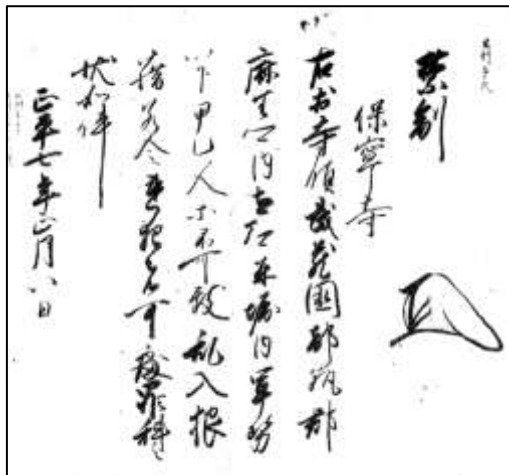 禁制
保寧寺
右於寺領武蔵國都筑郡
麻生郷内堀内軍勢
以下甲乙人等不可致乱入狼
藉若令違犯者可處罪科之
状如件
正平七年正月八日